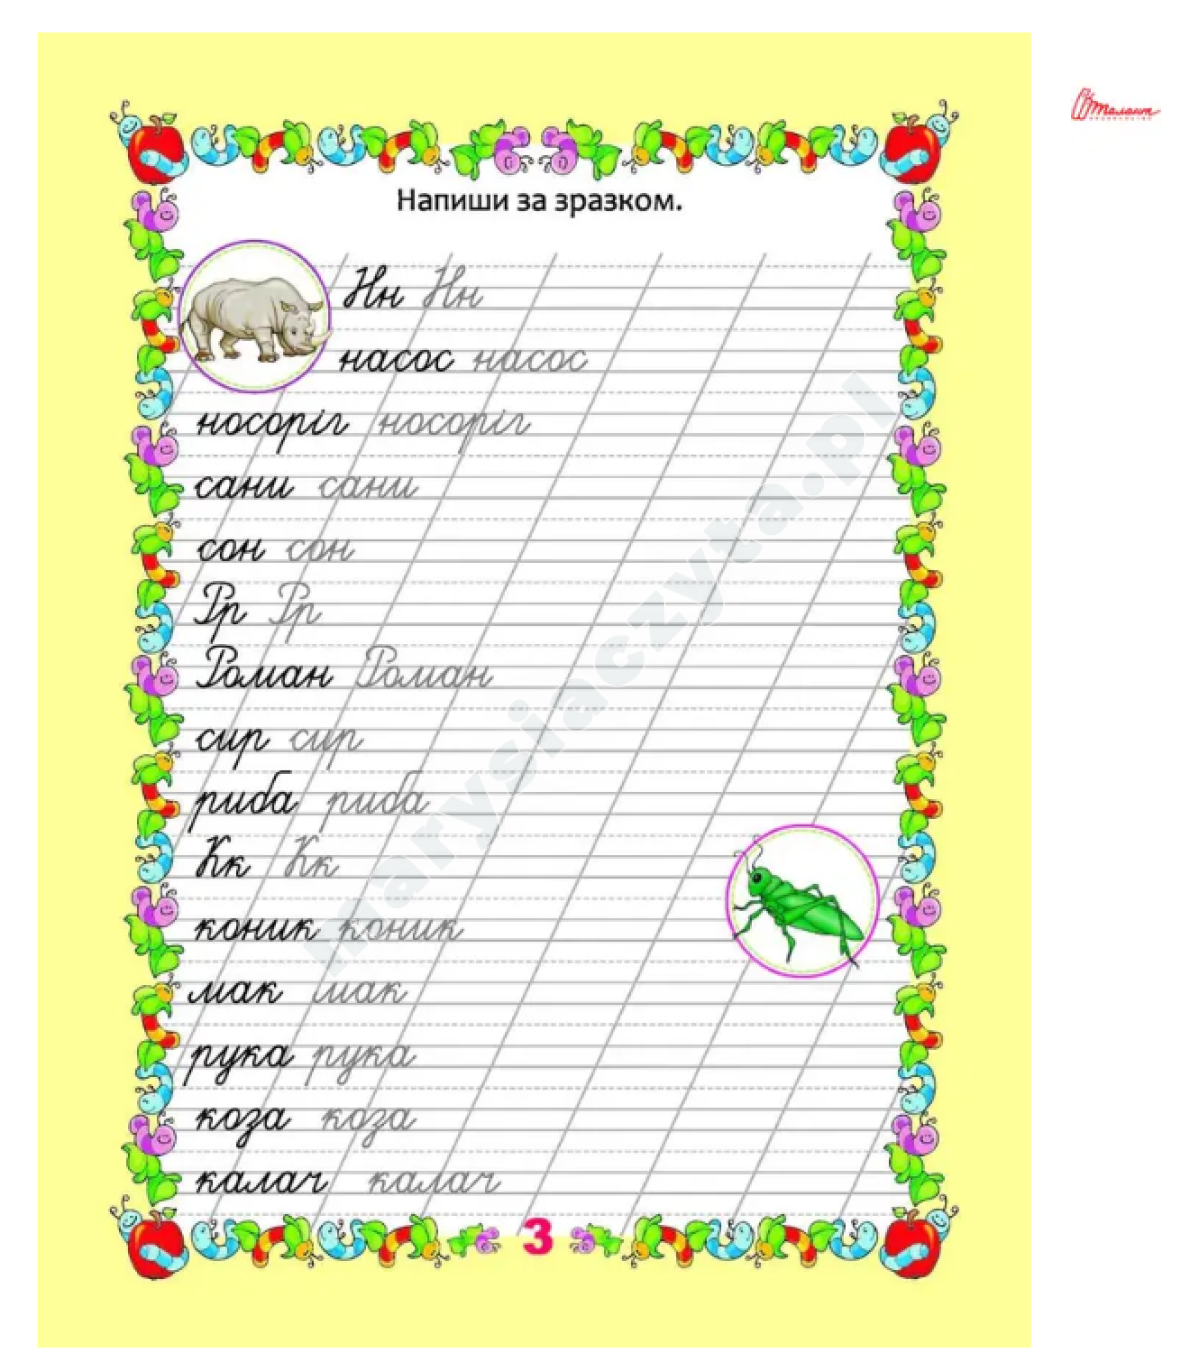 Талант
Напиши за зразком.
Нн Нн
насос насос
носоріг носоріг
сани сани
сон сон
Рр Рр
Роман Роман
сир сир
риба риба
Кк Кк
коник коник
мак мак
рука рука
коза коза
калач калач
3
marysiaczyta.pl